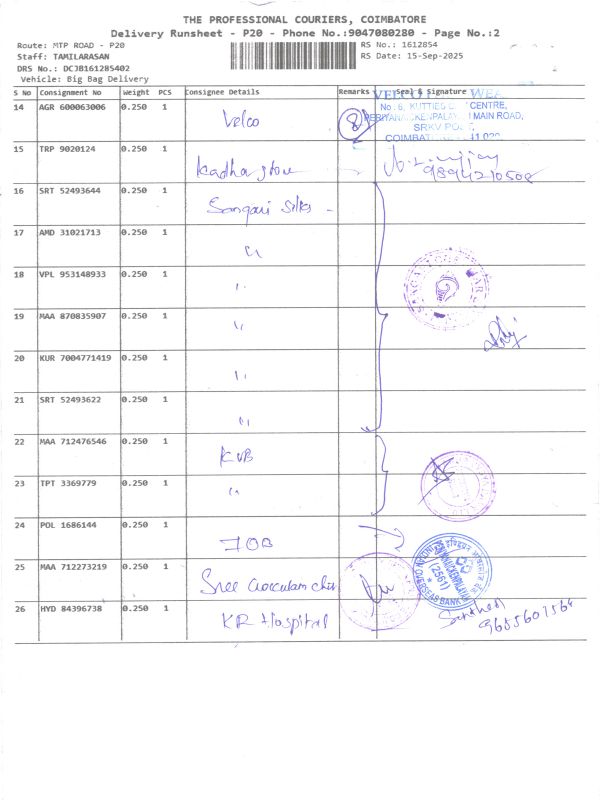 THE PROFESSIONAL COURIERS, COIMBATORE
Delivery Runsheet - P20 - Phone No.:9047080280 - Page No.:2
Route: MTP ROAD - P20 RS No.: 1612854
Staff: TAMILARASAN RS Date: 15-Sep-2025
DRS No.: DCJB161285402
Vehicle: Big Bag Delivery
S No Consignment No Weight PCS Consignee Details Remarks Seal & Signature
14 AGR 600063006 0.250 1 Velco 8
No: 6, KUTTIES CENTRE,
MAIN ROAD,
SRKV POST,
15 TRP 9020124 0.250 1 Kadha store 9894210508
16 SRT 52493644 0.250 1 Sangavi silks
17 AMD 31021713 0.250 1 "
18 VPL 953148933 0.250 1 "
19 MAA 870835907 0.250 1 "
20 KUR 7004771419 0.250 1 "
21 SRT 52493622 0.250 1 "
22 MAA 712476546 0.250 1 KVB
23 TPT 3369779 0.250 1 "
24 POL 1686144 0.250 1 IOB
INDIAN OVERSEAS BANK
(2561)
25 MAA 712273219 0.250 1 Sree
26 HYD 84396738 0.250 1 KR Hospital